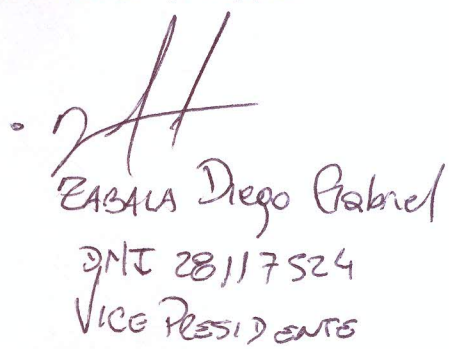 ZABALA Diego Gabriel
DNI 28117524
VICE PRESIDENTE